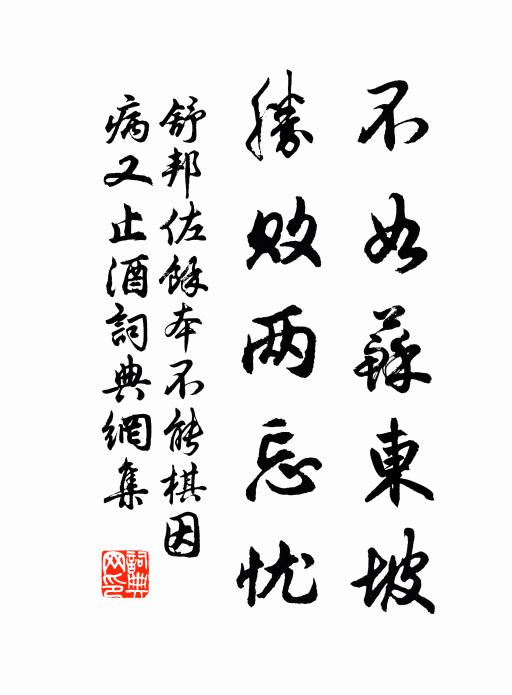 不如蘇東坡
勝敗两忘忧
舒邦佐餘本不能棋因
病又止酒詞典網集
詞典
网印